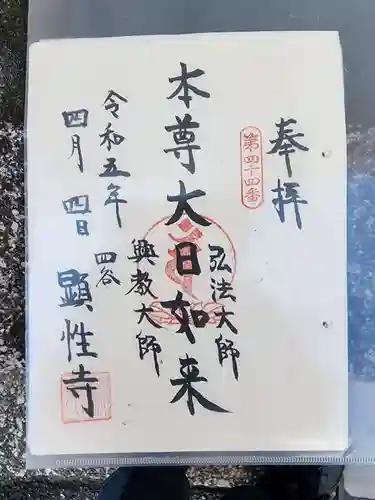 奉拝
第四十四番
弘法大師
本尊大日如来
興教大師
令和五年
四月四日
四谷
顕性寺